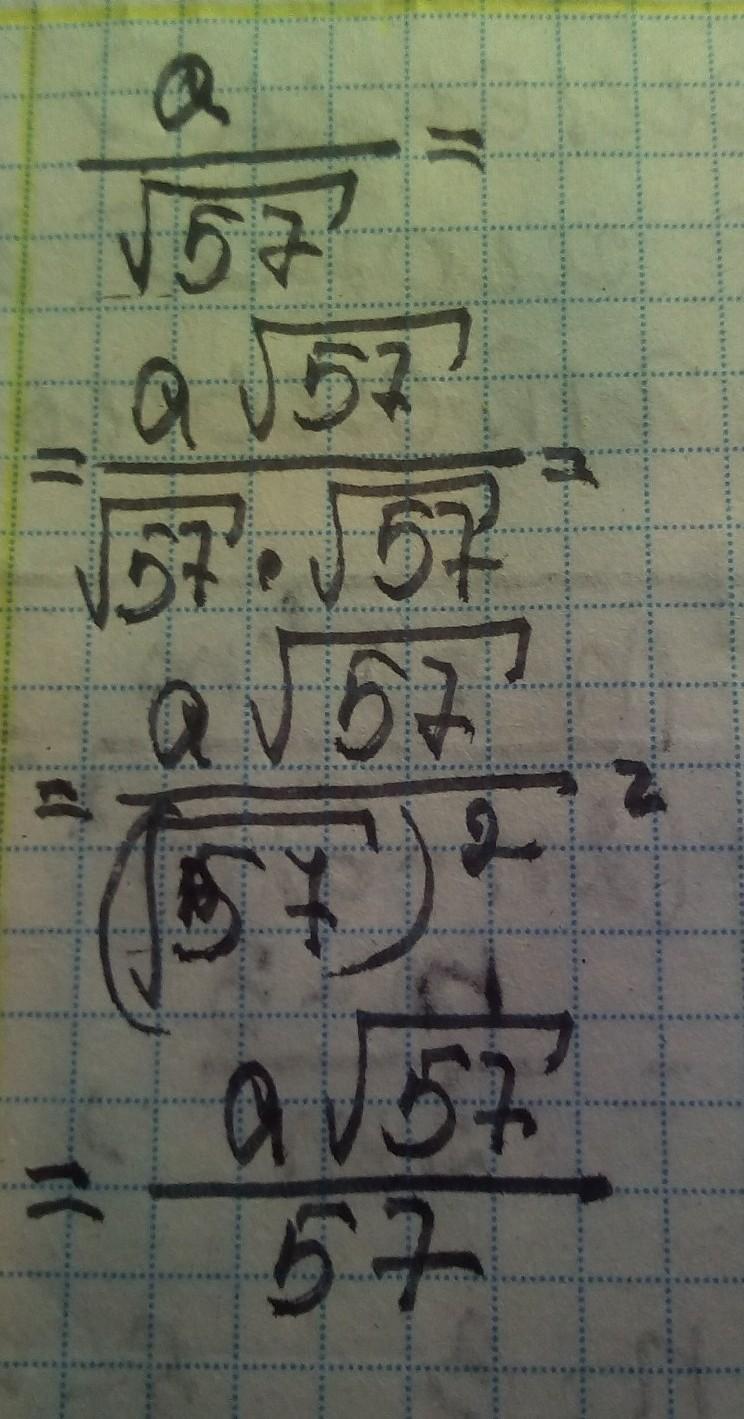 a
— =
√57
a √57
= ——— =
√57 · √57
a √57
= ——— =
(√57)²
a √57
= ———
57